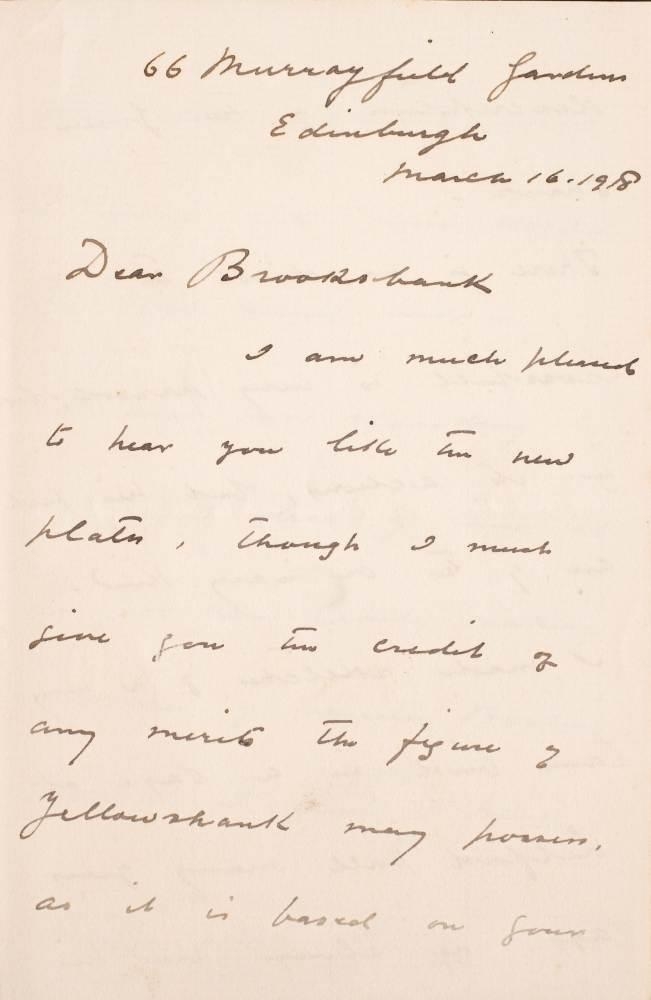 66 Murrayfield Gardens
Edinburgh
March 16. 1918
Dear Brooksbank
I am much pleased
to hear you like the new
plates, though I must
give you the credit of
any merits the figure of
Yellowshank may possess,
as it is based on your